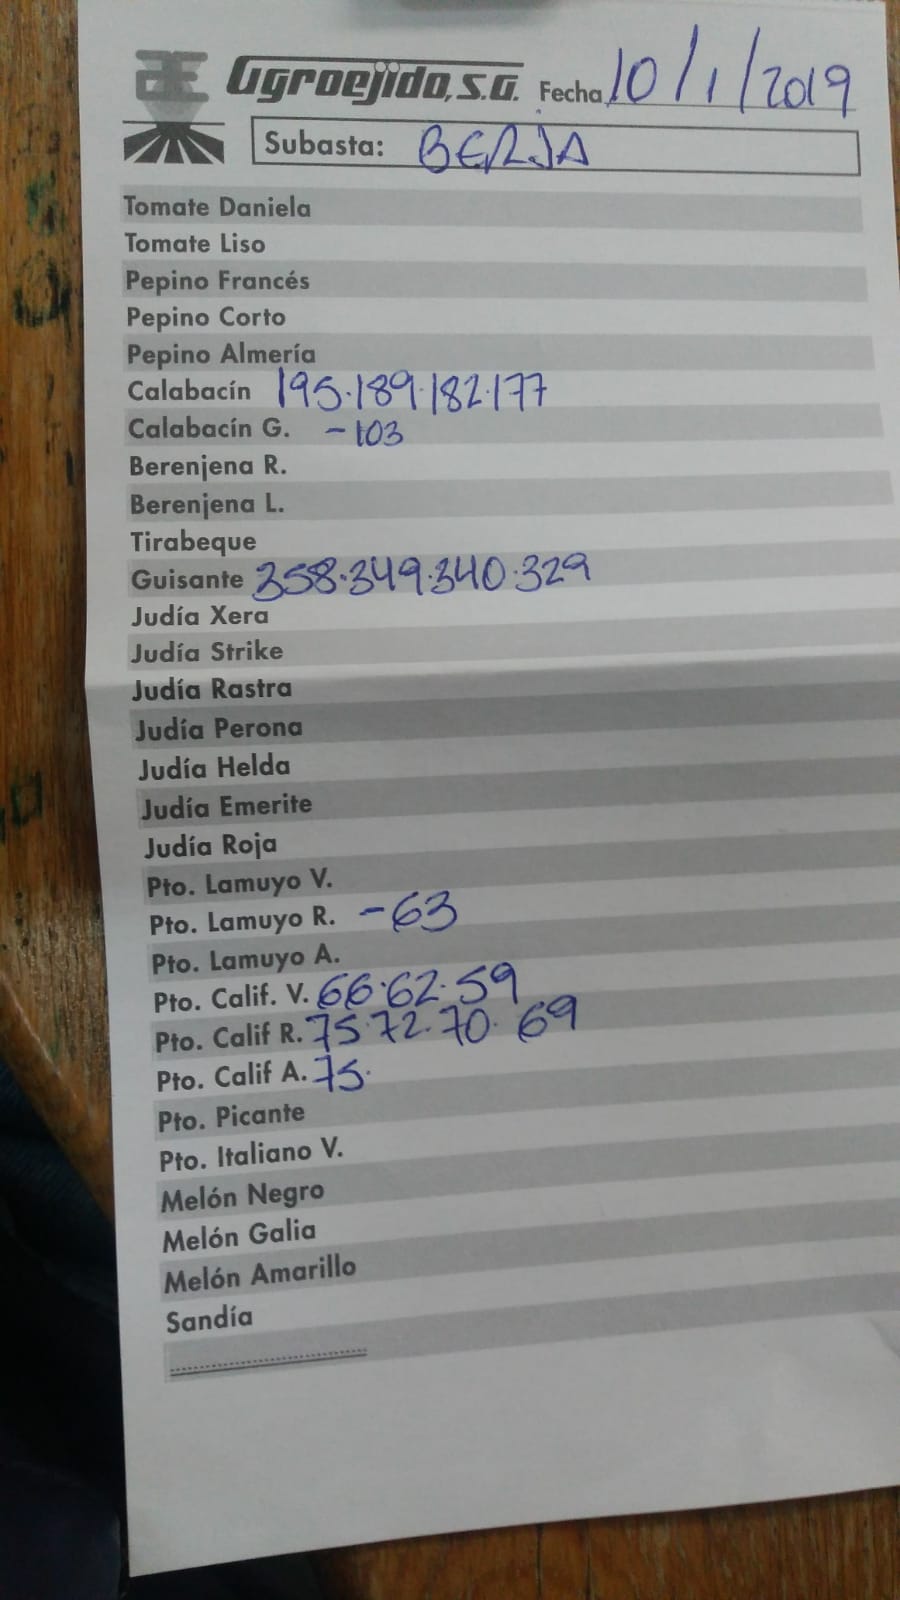 Agroejido, S.A. Fecha 10/1/2019
Subasta: BERJA
Tomate Daniela
Tomate Liso
Pepino Francés
Pepino Corto
Pepino Almería
Calabacín 195.189.182.177
Calabacín G. -103
Berenjena R.
Berenjena L.
Tirabeque
Guisante 358.349.340.329
Judía Xera
Judía Strike
Judía Rastra
Judía Perona
Judía Helda
Judía Emerite
Judía Roja
Pto. Lamuyo V.
Pto. Lamuyo R. -63
Pto. Lamuyo A.
Pto. Calif. V. 66.62.59
Pto. Calif R. 75.72.70.69
Pto. Calif A. 75.
Pto. Picante
Pto. Italiano V.
Melón Negro
Melón Galia
Melón Amarillo
Sandía